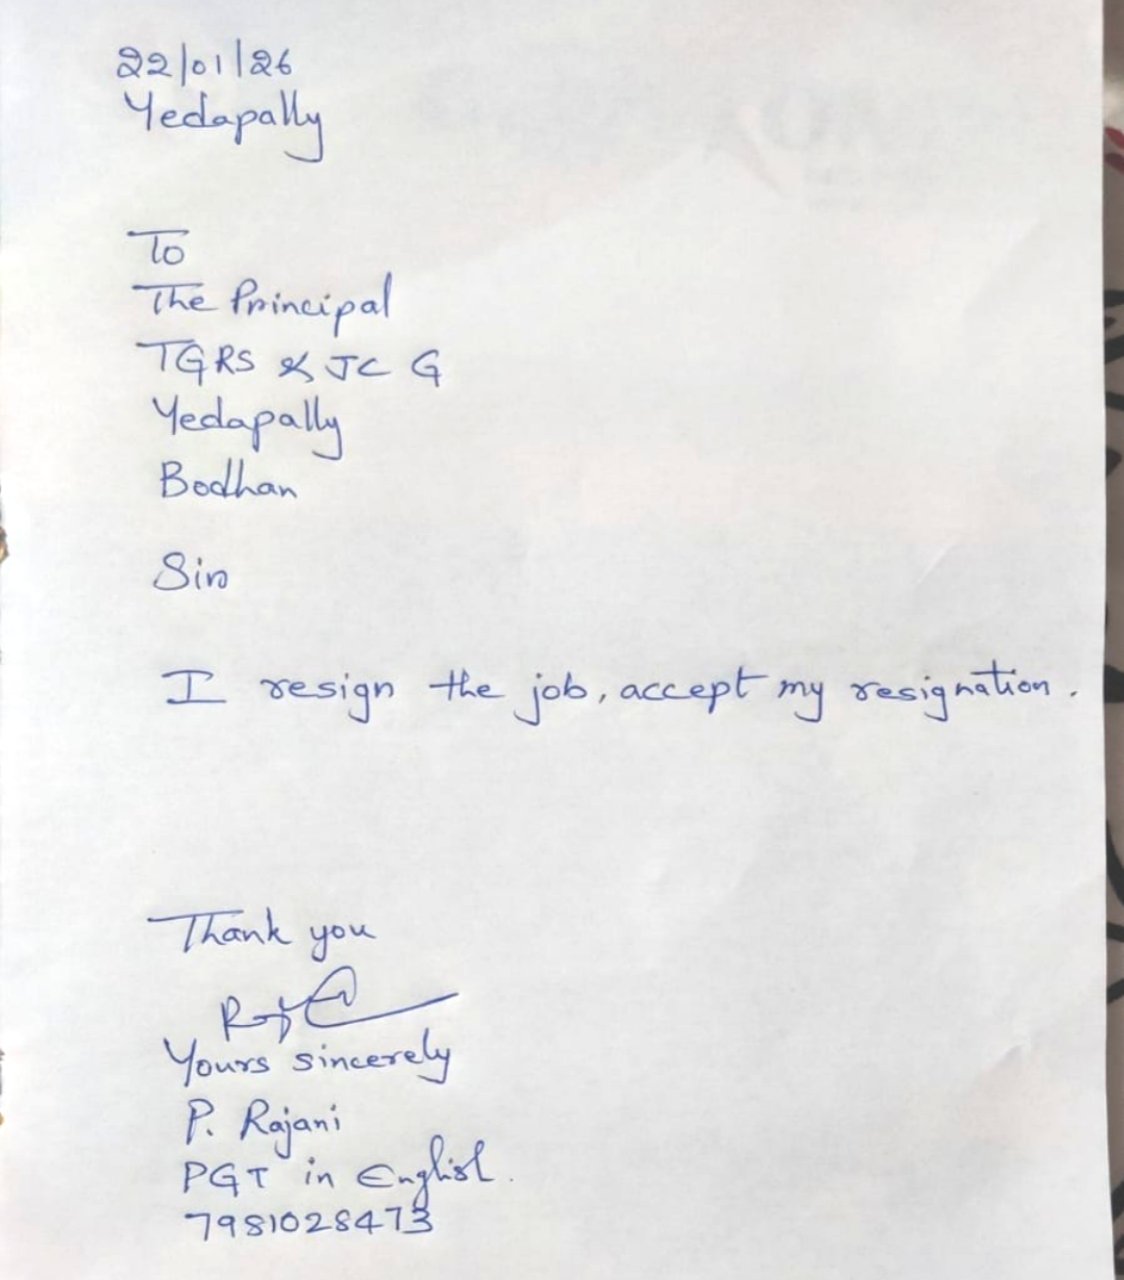 22/01/26
Yedapally
To
The Principal
TGRS & JC G
Yedapally
Bodhan
Sir
I resign the job, accept my resignation.
Thank you
Yours sincerely
P. Rajani
PGT in English.
7981028473